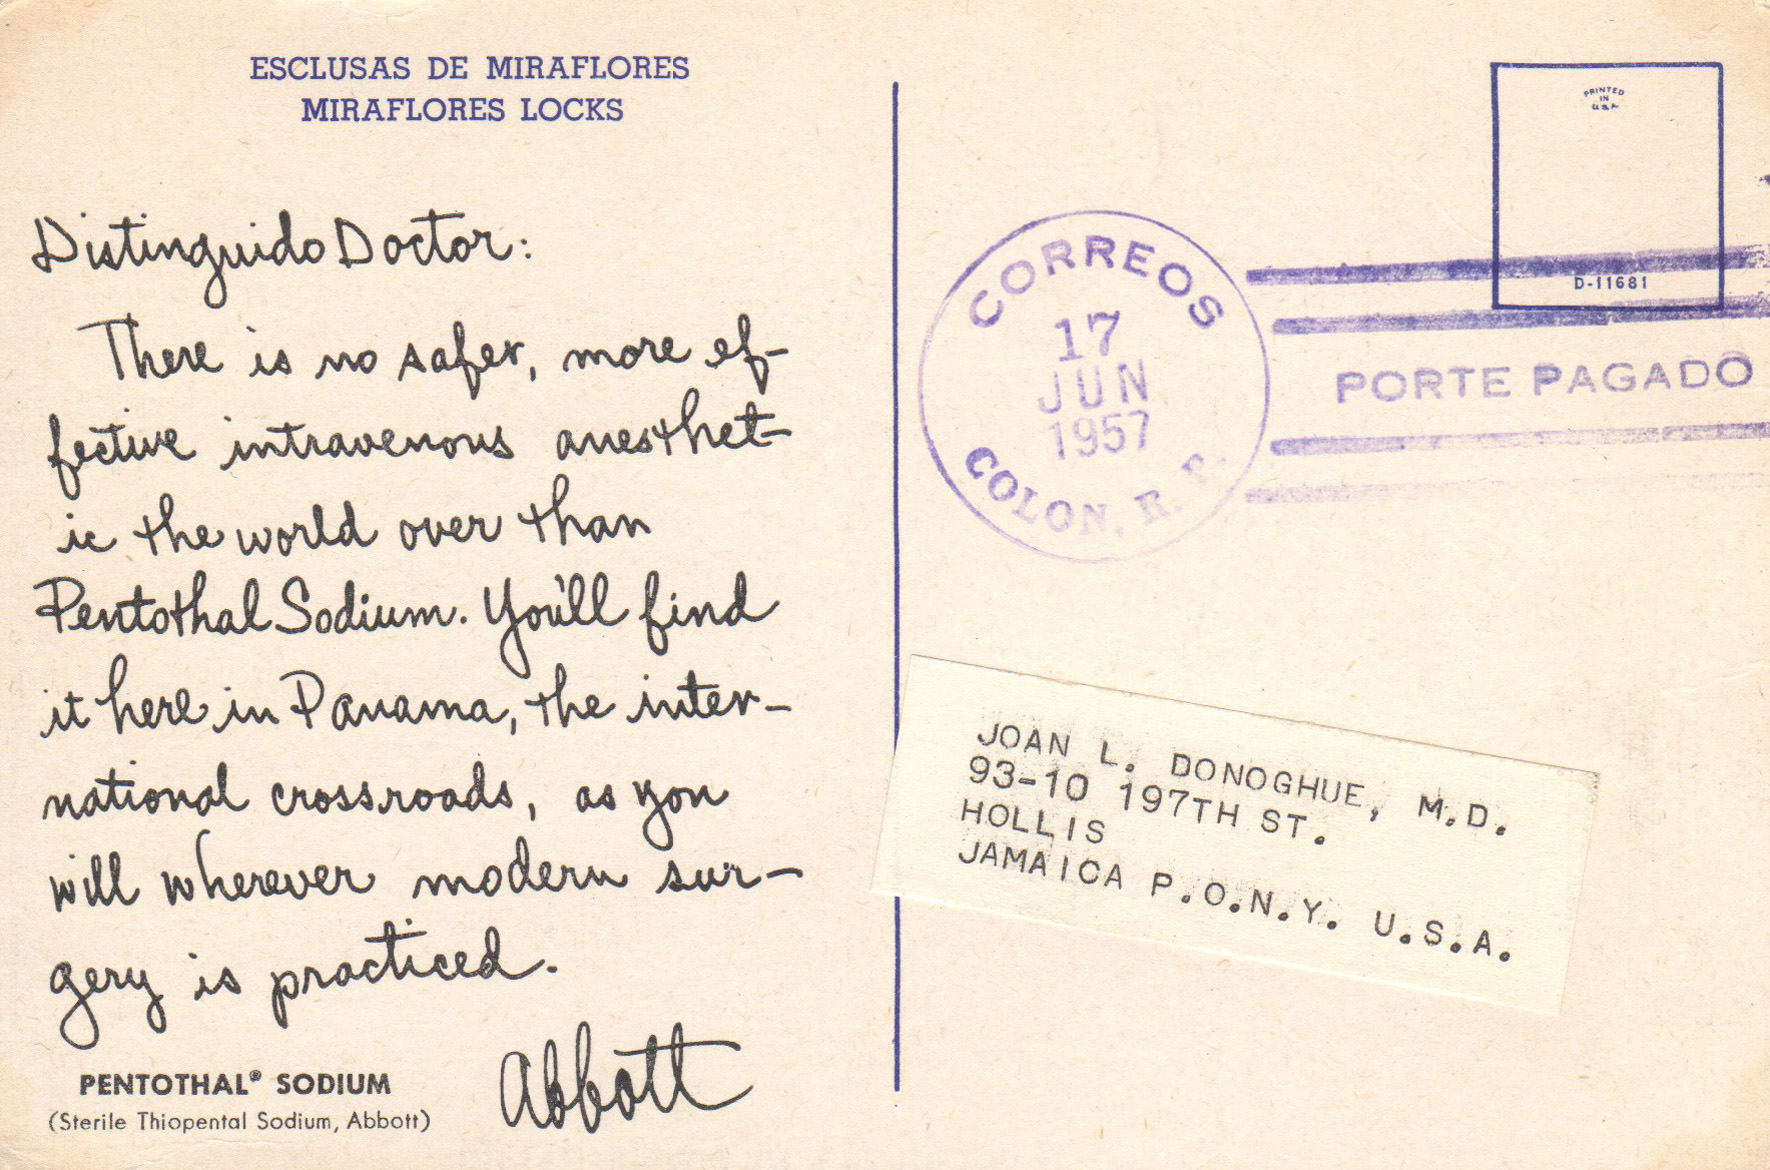 ESCLUSAS DE MIRAFLORES
MIRAFLORES LOCKS
Distinguido Doctor:
There is no safer, more ef-
fective intravenous anesthet-
ic the world over than
Pentothal Sodium. You'll find
it here in Panama, the inter-
national crossroads, as you
will wherever modern sur-
gery is practiced.
Abbott
PENTOTHAL® SODIUM
(Sterile Thiopental Sodium, Abbott)
PRINTED
IN
U.S.A.
D-11681
CORREOS
17
JUN
1957
COLON, R. P.
PORTE PAGADO
JOAN L. DONOGHUE, M.D.
93-10 197TH ST.
HOLLIS
JAMAICA P.O.N.Y. U.S.A.